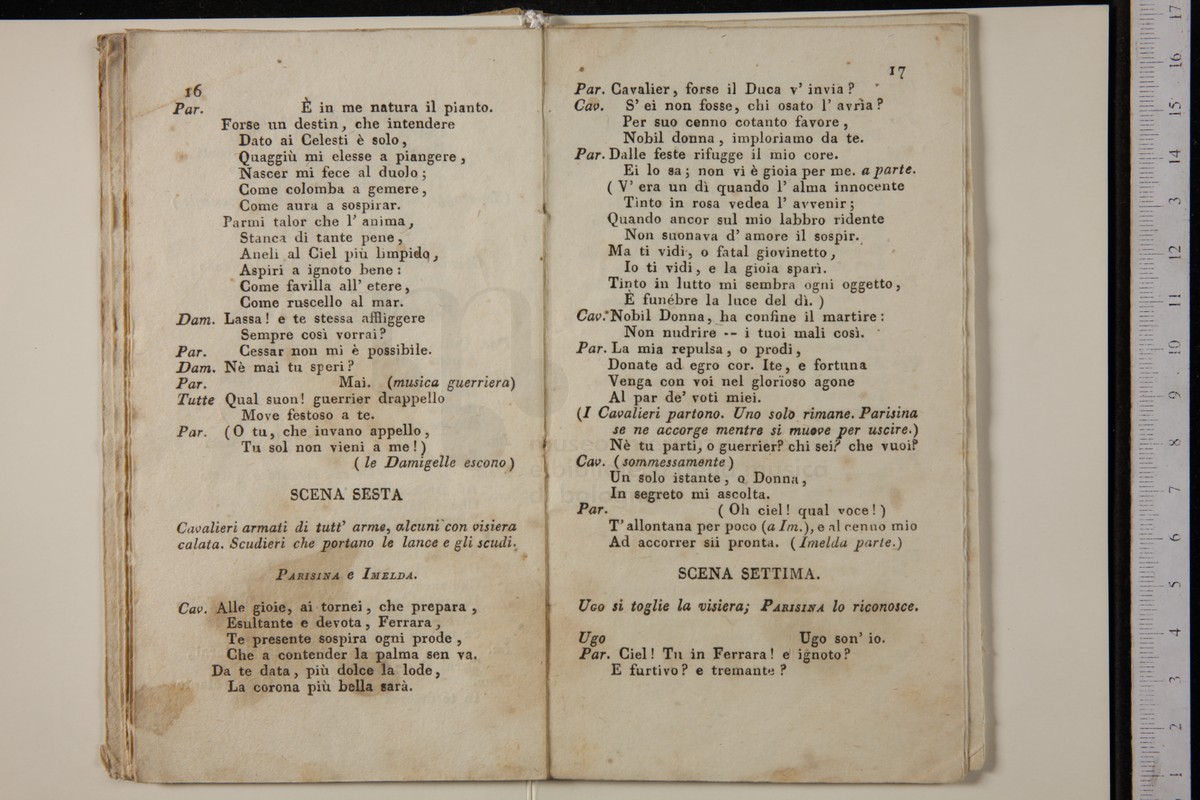 16
Par. È in me natura il pianto.
Forse un destin, che intendere
Dato ai Celesti è solo,
Quaggiù mi elesse a piangere,
Nascer mi fece al duolo;
Come colomba a gemere,
Come aura a sospirar.
Parmi talor che l' anima,
Stanca di tante pene,
Aneli al Ciel più limpido,
Aspiri a ignoto bene:
Come favilla all' etere,
Come ruscello al mar.
Dam. Lassa! e te stessa affliggere
Sempre così vorrai?
Par. Cessar non mi è possibile.
Dam. Nè mai tu speri?
Par. Mai. (musica guerriera)
Tutte Qual suon! guerrier drappello
Move festoso a te.
Par. (O tu, che invano appello,
Tu sol non vieni a me!)
(le Damigelle escono)
SCENA SESTA
Cavalieri armati di tutt' arme, alcuni con visiera
calata. Scudieri che portano le lance e gli scudi.
PARISINA e IMELDA.
Cav. Alle gioie, ai tornei, che prepara,
Esultante e devota, Ferrara,
Te presente sospira ogni prode,
Che a contender la palma sen va.
Da te data, più dolce la lode,
La corona più bella sarà.
17
Par. Cavalier, forse il Duca v' invia?
Cav. S' ei non fosse, chi osato l' avrìa?
Per suo cenno cotanto favore,
Nobil donna, imploriamo da te.
Par. Dalle feste rifugge il mio core.
Ei lo sa; non vi è gioia per me. a parte.
(V' era un dì quando l' alma innocente
Tinto in rosa vedea l' avvenir;
Quando ancor sul mio labbro ridente
Non suonava d' amore il sospir.
Ma ti vidi, o fatal giovinetto,
Io ti vidi, e la gioia sparì.
Tinto in lutto mi sembra ogni oggetto,
È funébre la luce del dì. )
Cav. Nobil Donna, ha confine il martire:
Non nudrire -- i tuoi mali così.
Par. La mia repulsa, o prodi,
Donate ad egro cor. Ite, e fortuna
Venga con voi nel glorïoso agone
Al par de' voti miei.
(I Cavalieri partono. Uno solo rimane. Parisina
se ne accorge mentre si muove per uscire.)
Nè tu parti, o guerrier? chi sei? che vuoi?
Cav. (sommessamente)
Un solo istante, o Donna,
In segreto mi ascolta.
Par. (Oh ciel! qual voce!)
T' allontana per poco (a Im.), e al cenno mio
Ad accorrer sii pronta. (Imelda parte.)
SCENA SETTIMA.
UGO si toglie la visiera; PARISINA lo riconosce.
Ugo Ugo son' io.
Par. Ciel! Tu in Ferrara! e ignoto?
E furtivo? e tremante?